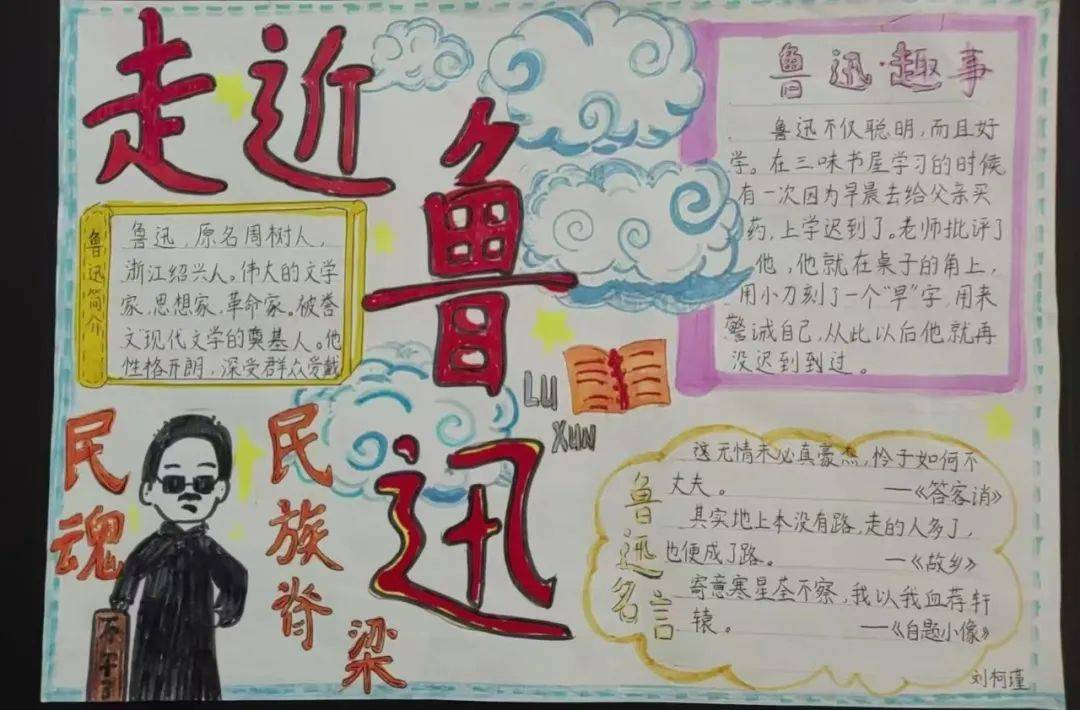 走近
鲁
迅
LU
XUN
鲁迅简介
鲁迅，原名周树人，
浙江绍兴人。伟大的文学
家，思想家，革命家。被誉
文"现代文学的奠基人。他
性格开朗，深受群众爱戴
鲁迅·趣事
鲁迅不仅聪明，而且好
学。在三味书屋学习的时候
有一次因为早晨去给父亲买
药，上学迟到了。老师批评了
他，他就在桌子的角上，
用小刀刻了一个"早"字，用来
警诫自己，从此以后他就再
没迟到到过。
民魂
民族脊梁
鲁迅名言
无情未必真豪杰，怜子如何不
丈夫。 —《答客诮》
其实地上本没有路，走的人多了，
也便成了路。 —《故乡》
寄意寒星荃不察，我以我血荐轩
辕。 —《自题小像》
刘柯瑾